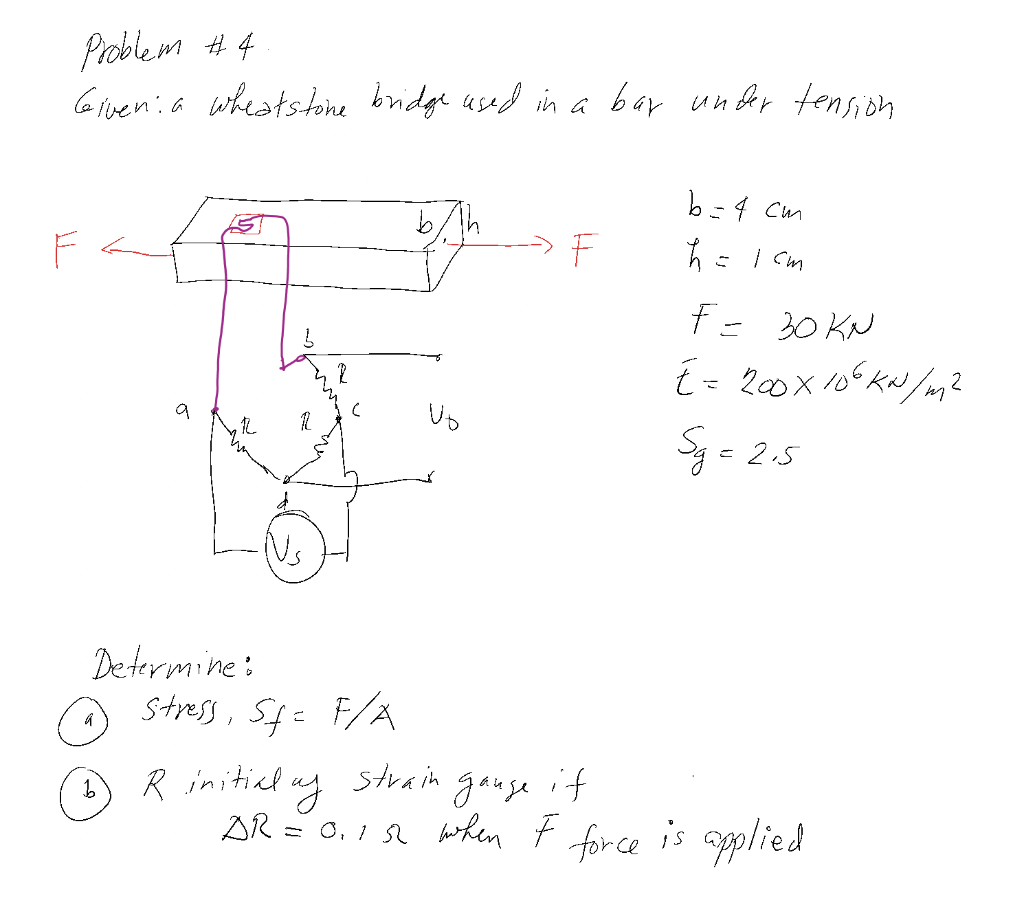 Problem #4
Given: a wheatstone bridge used in a bar under tension
b = 4 cm
b h
F F
h = 1 cm
F = 30 KN
b
R
E = 200 x 10⁶ KN/m²
a R R c Vo
Sg = 2.5
d
Vs
Determine:
a Stress, Sf = F/A
b R initial of strain gauge if
ΔR = 0.1 Ω when F force is applied